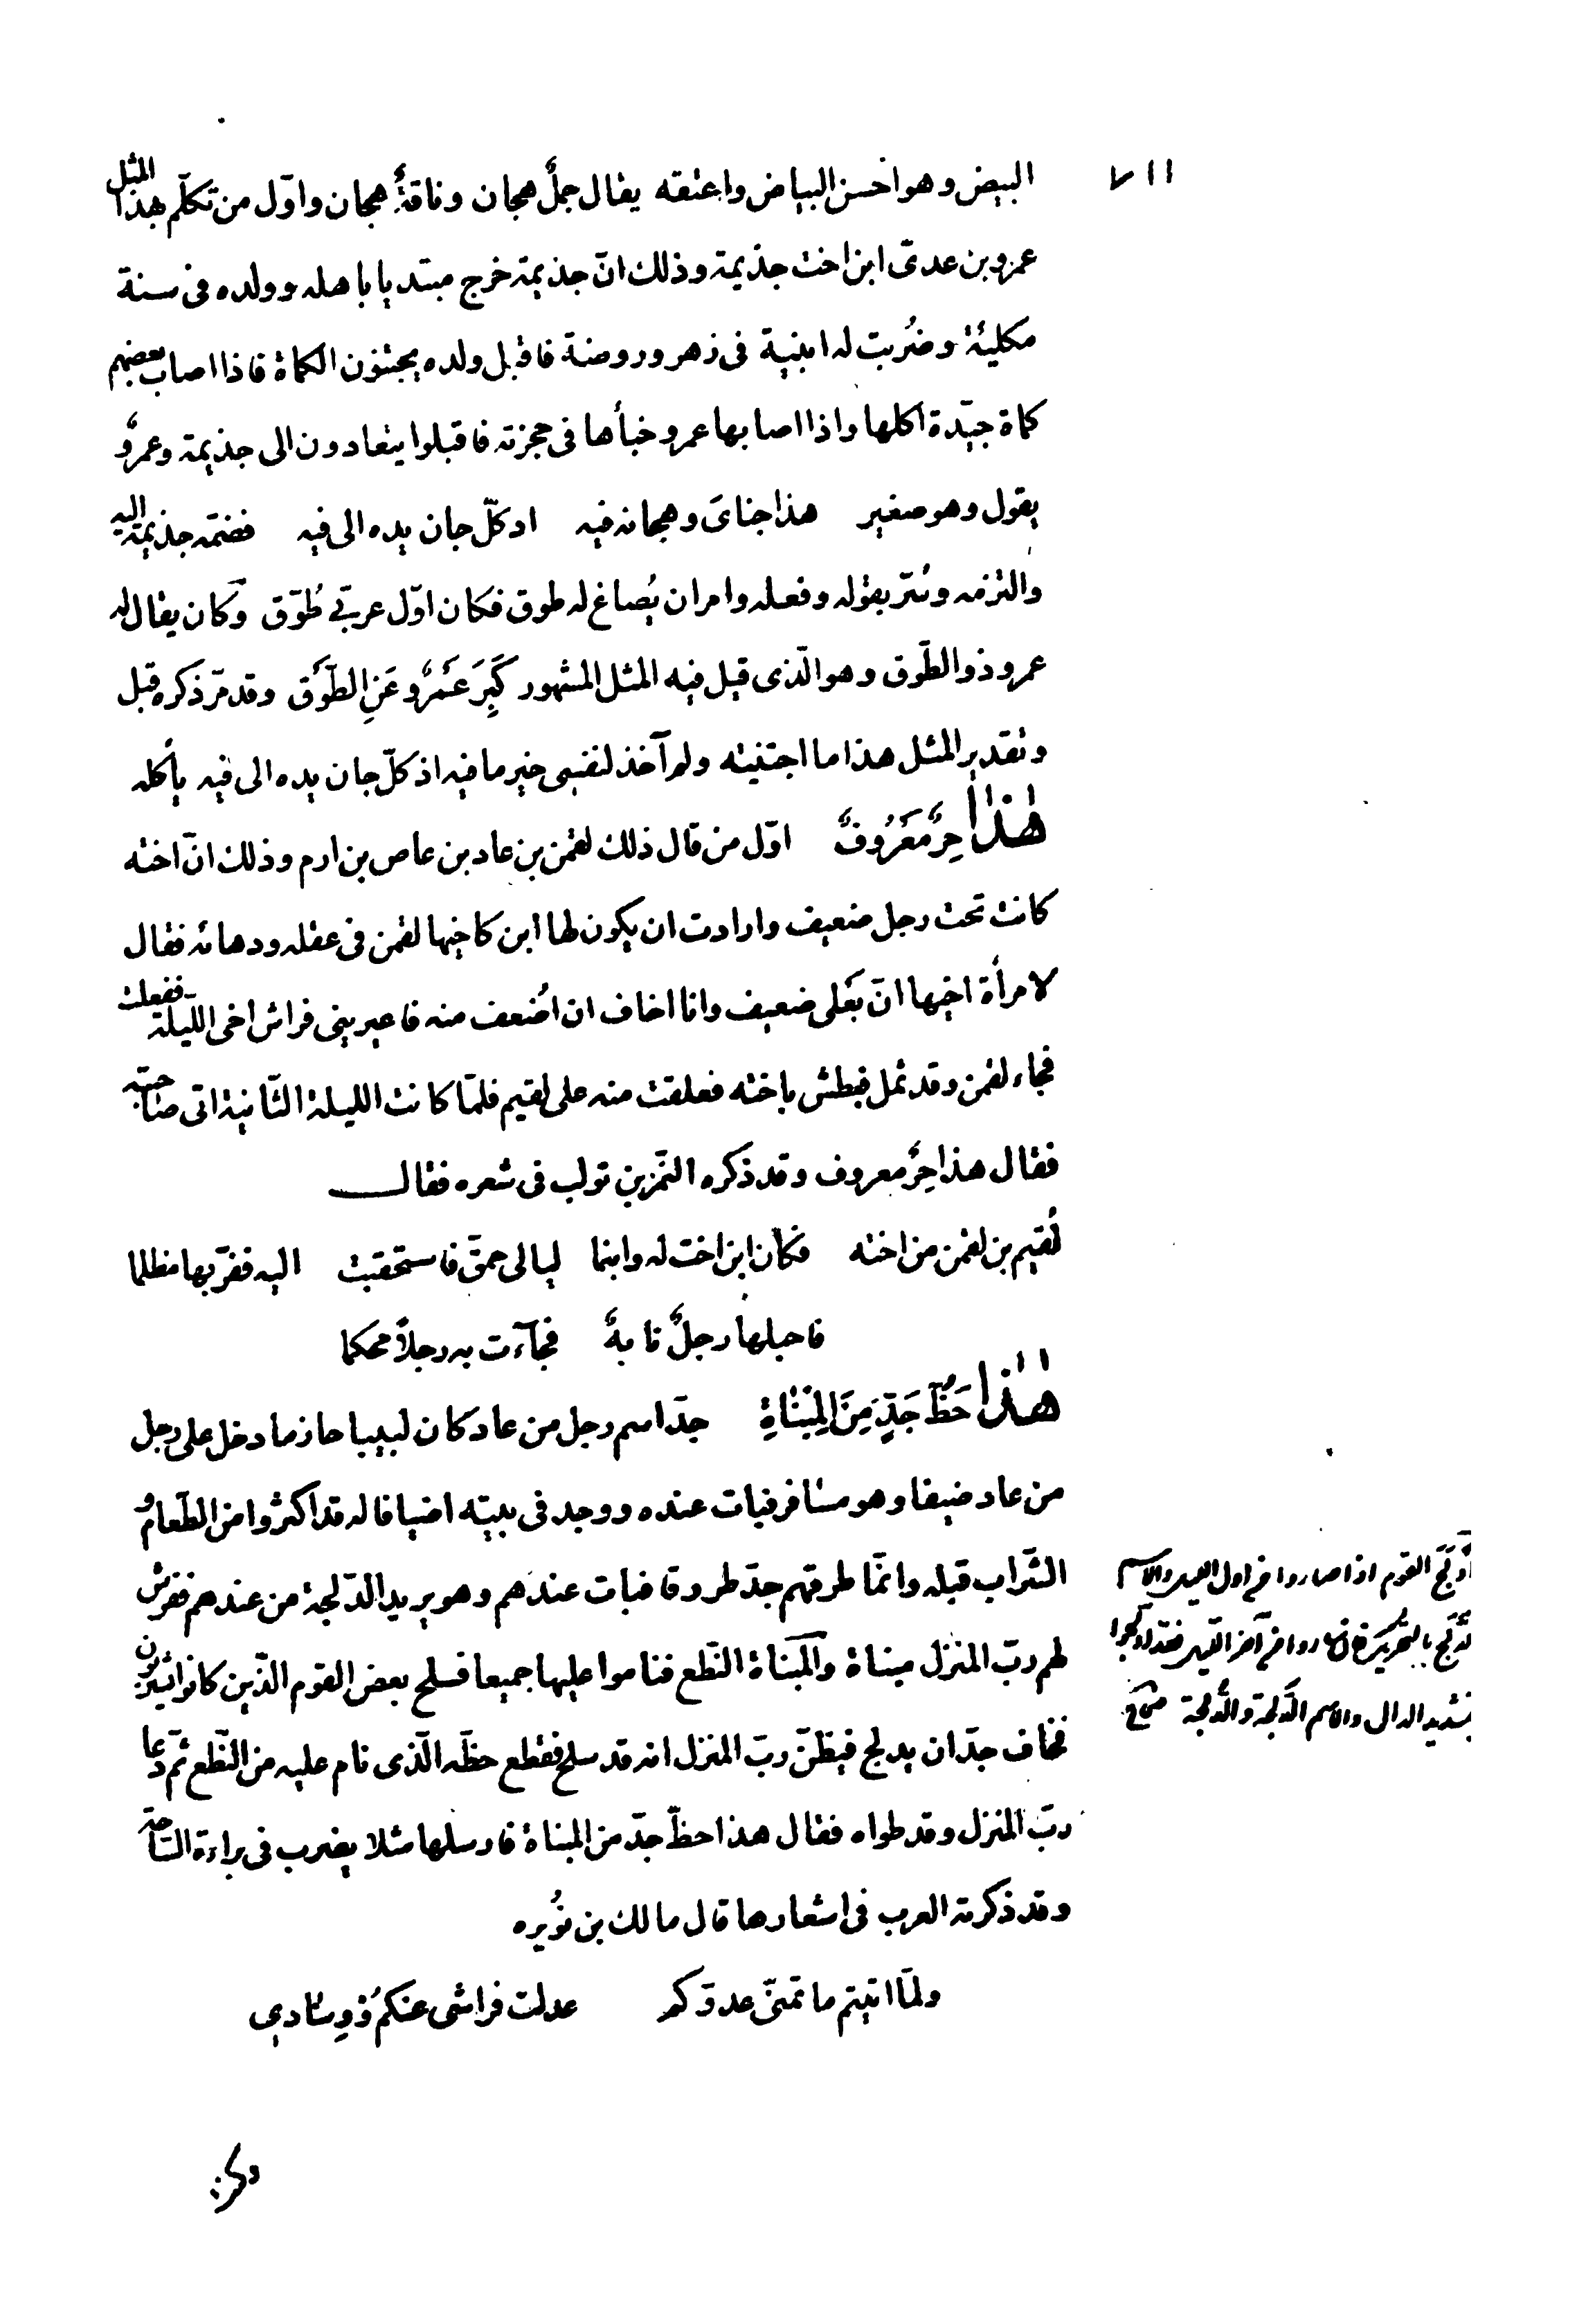 ٧١١
البيض وهو احسن البياض واعتقه يقال جملٌ هجان وناقةٌ هجان واوّل من تكلّم بهذا المثل
عمرو بن عدىّ ابن اخت جذيمة وذلك انّ جذيمة خرج مبتديا باهله وولده فى سنة
مكلئة وضُربت له ابنية فى زهر وروضة فاقبل ولده يجتنون الكماة فاذا اصاب بعضهم
كماة جيّدة اكلها واذا اصابها عمرو خبأها فى حجزته فاقبلوا يتعادون الى جذيمة وعمرٌو
يقول وهو صغير هذا جناىَ وهجانه فيه اذ كلّ جان يده الى فيه فضمّه جذيمة اليه
والتزمه وسُرّ بقوله وفعله وامر ان يُصاغ له طوق فكان اوّل عربىّ طُوّق وكان يقال له
عمرو ذو الطّوق وهو الّذى قيل فيه المثل المشهور كَبِرَ عَمْرٌو عَنِ الطَّوْق وقد مرّ ذكره قبل
وتقدير المثل هذا ما اجتنيته ولم آخذ لنفسى خير ما فيه اذ كلّ جان يده الى فيه يأكله
هٰذا حِرٌ مَعْرُوفٌ اوّل من قال ذلك لقمن بن عاد بن عاص بن ارم وذلك انّ اخته
كانت تحت رجل ضعيف وارادت ان يكون لها ابن كاخيها لقمن فى عقله ودهائه فقال
لامرأة اخيها انّ بَعْلى ضعيف وانا اخاف ان اضُعف منه فاعيرينى فراش اخى اللّيلة ففعلت
فجاء لقمن وقد ثمل فبطش باخته فعلقت منه على لقيم فلمّا كانت الليلة الثّانية اتى صاحبته
فقال هذا حِرٌ معروف وقد ذكره النّمر بن تولب فى شعره فقال
لُقيم بن لقمن من اخته فكان ابن اخت له وابنما ليالى حمق فاستحقبت اليه فغرّ بها مظلما
فاحبلها رجلٌ نابهٌ فجآءت به رجلاً محكما
هٰذا حَظُّ جَدٍّ مِنَ المِبْنٰاةِ جدّ اسم رجل من عاد كان لبيبا حازما دخل على رجل
من عاد ضيفا وهو مسافر فبات عنده ووجد فى بيته اضيافا له قد اكثروا من الطّعام و
الشّراب قبله وانّما طرقهم جدّ طروقا فبات عندهم وهو يريد الدّلجة من عندهم ففرش
لهم ربّ المنزل مبناة والمَبناة النّطع فناموا عليها جميعا فسلح بعض القوم الّذين كانوا يشربون
فخاف جدّ ان يدلج فيظنّ ربّ المنزل انه قد سلح فقطع حظّه الّذى نام عليه من النّطع ثمّ دعا
ربّ المنزل وقد طواه فقال هذا حظّ جدّ من المبناة فارسلها مثلا يضرب فى براءة السّاحة
وقد ذكرته العرب فى اشعارها قال مالك بن نُويره
ولمّا اتيتم ما تمنّى عدوّكم عدلت فراشى عنكمُ ووِسادي
أدْلَجَ القوم اذا صاروا فى اول الليل والاسم
الدَّلَج بالتحريك فان صاروا فى آخر اللّيل فقد ادّلجوا
بتشديد الدال والاسم الدَّلجة والدُّلجة